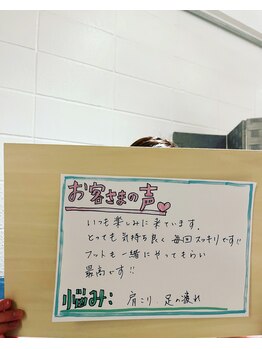 お客さまの声
いつも楽しみに来ています。
とっても気持ち良く毎回スッキリです!!
フットも一緒にやってもらい
最高です!!
悩み: 肩こり、足の疲れ